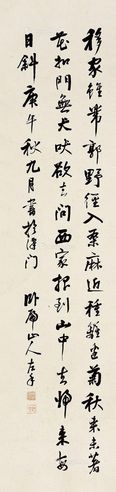 移家雖帶郭野徑入桑麻近種籬邊菊秋來未著
花扣門無犬吠欲去問西家報到山中去歸來每
日斜庚午秋九月書於津门
卧廬山人左手